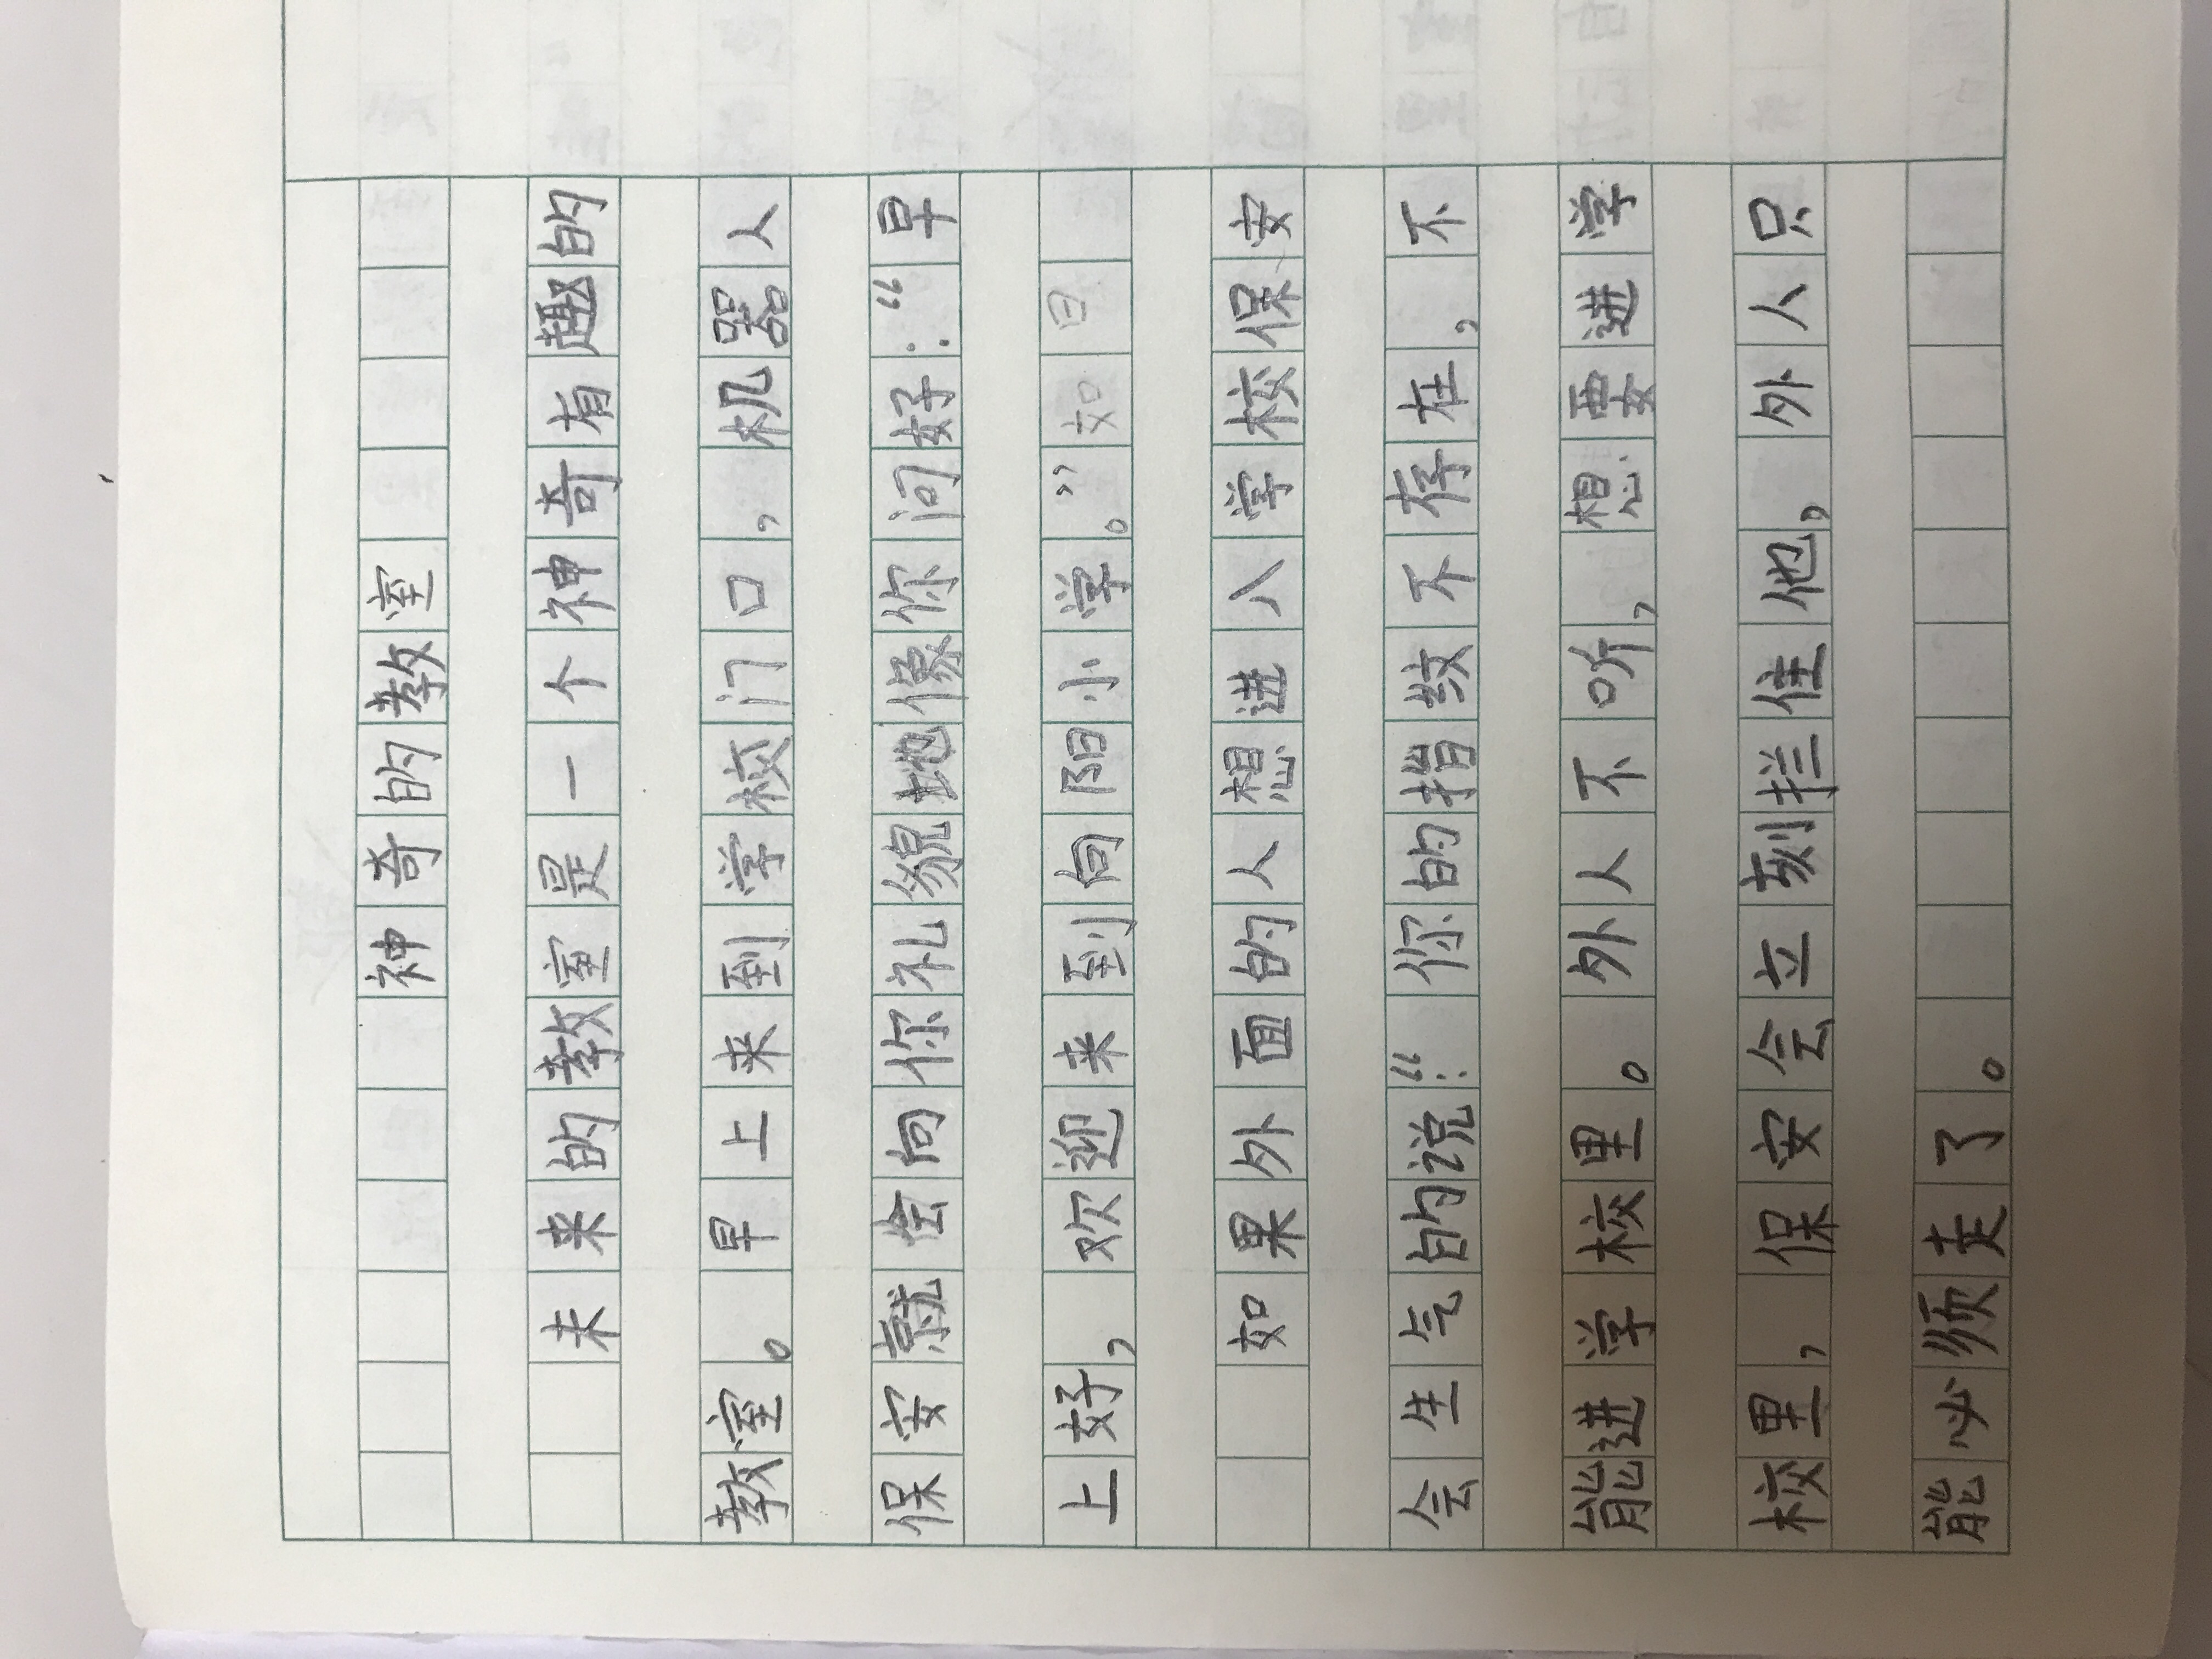 神奇的教室
未来的教室是一个神奇有趣的
教室。早上来到学校门口，机器人
保安就会向你礼貌地像你问好：“早
上好，欢迎来到向阳小学。”
如果外面的人想进入学校保安
会生气的说：“你的指纹不存在，不
能进学校里。外人不听，想要进学
校里，保安会立刻拦住他，外人只
能必须走了。